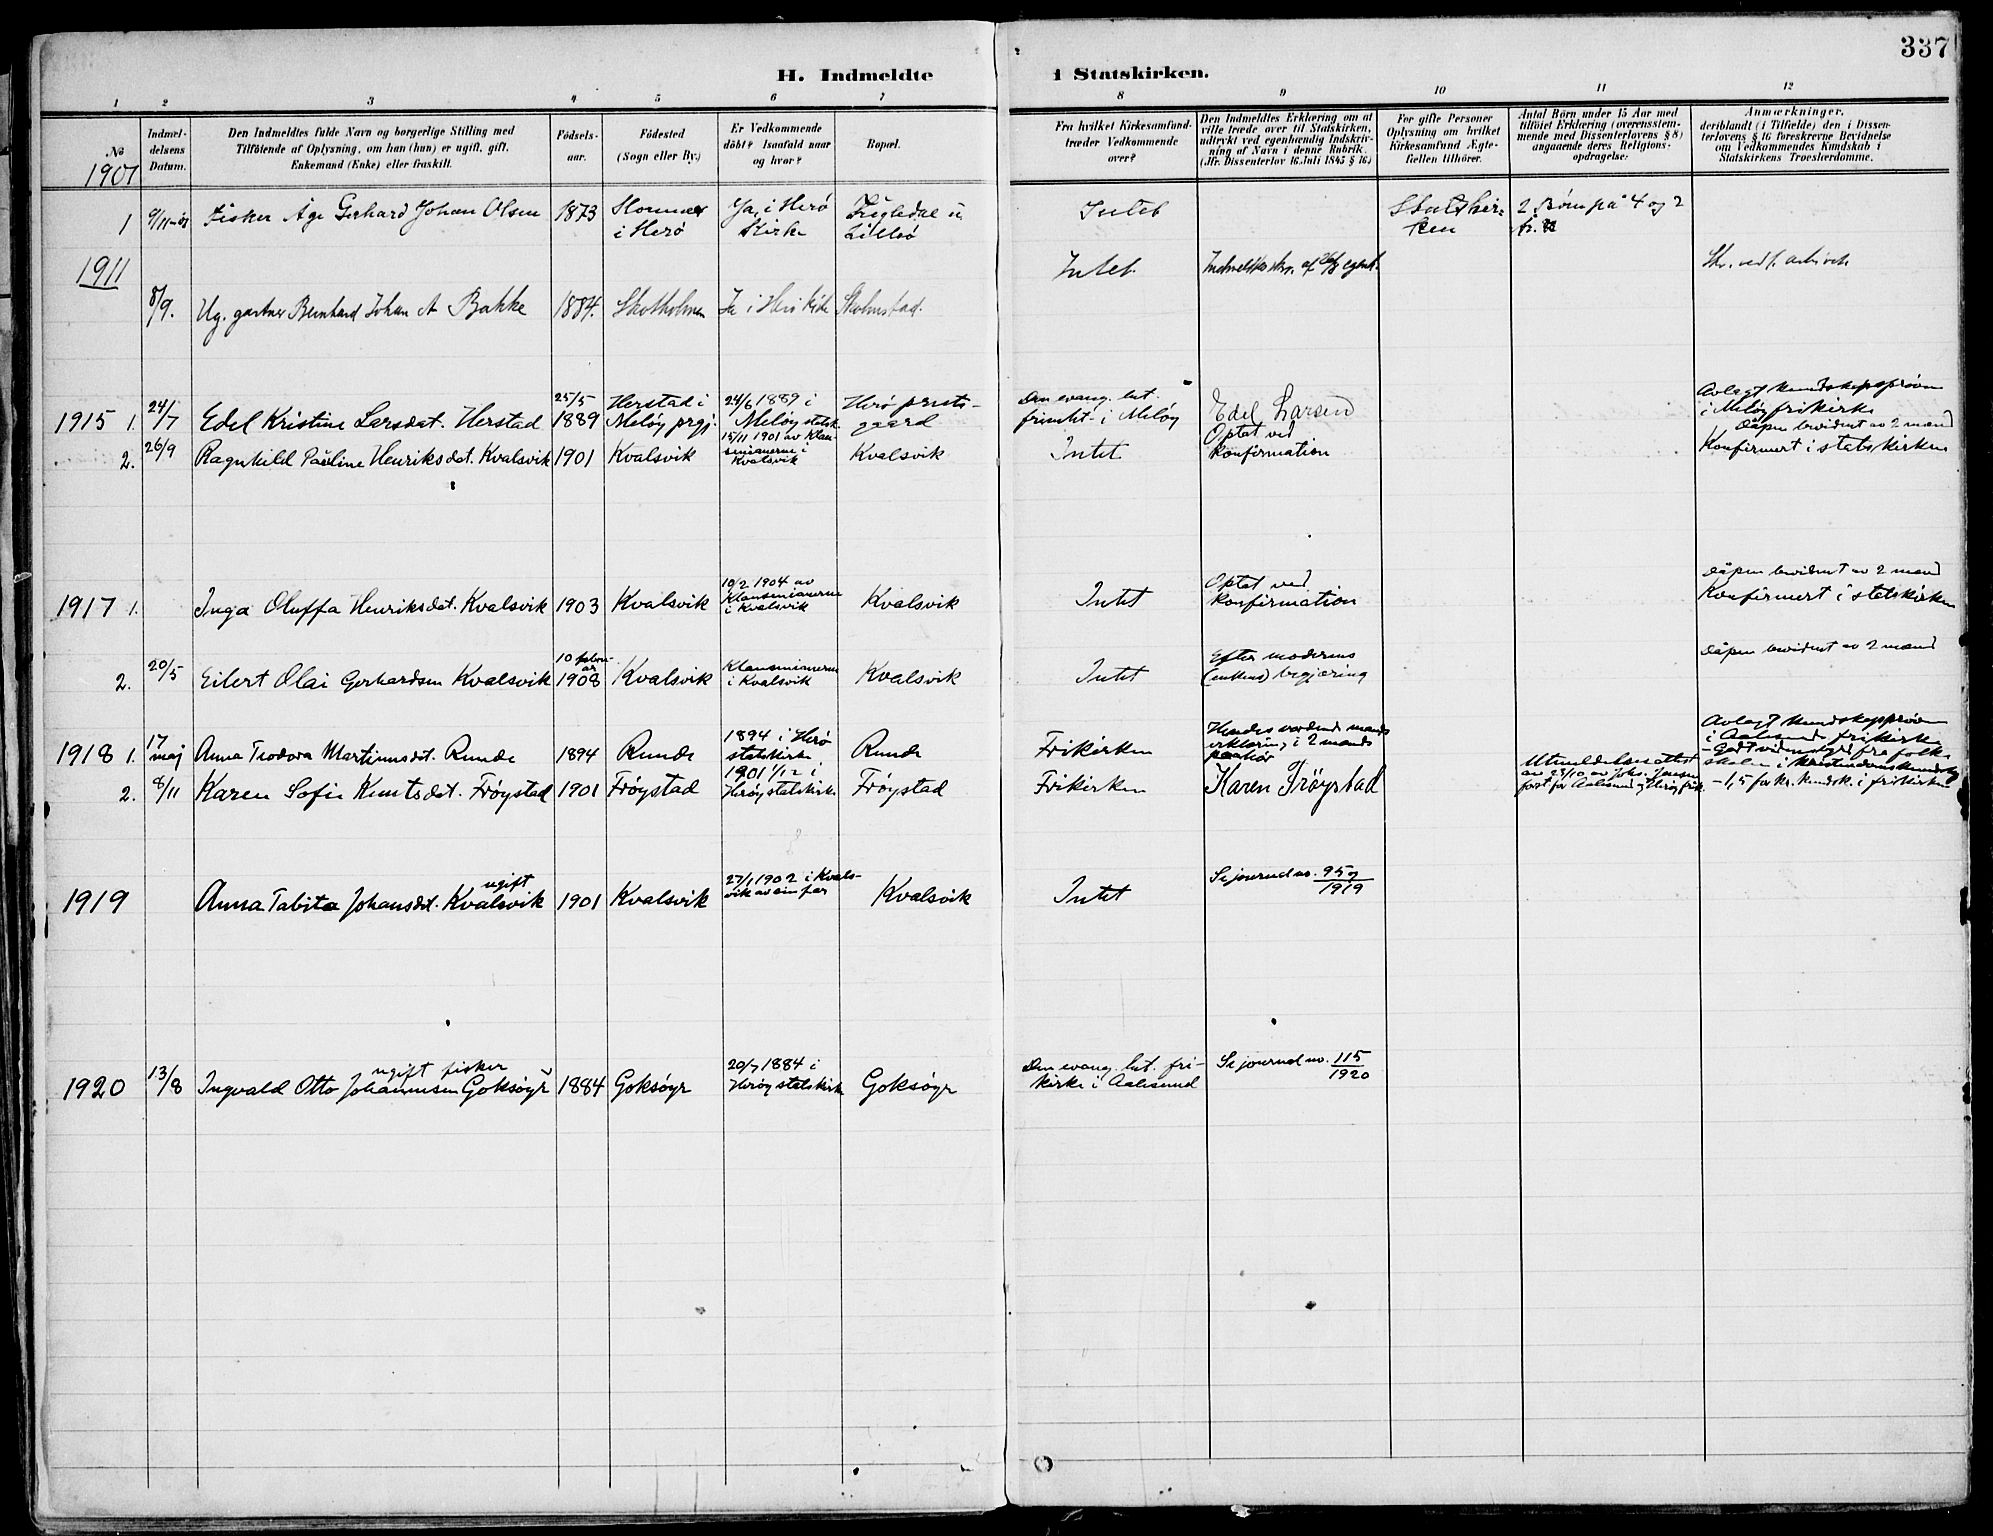 337
H. Indmeldte i Statskirken.
1 2 3 4 5 6 7 8 9 10 11 12
No
Indmel-
delsens
Datum.
Den Indmeldtes fulde Navn og borgerlige Stilling med
Tilföiende af Oplysning, om han (hun) er ugift, gift,
Enkemand (Enke) eller fraskilt.
Födsels-
aar.
Födested
(Sogn eller By.)
Er Vedkommende
döbt? Isaafald naar
og hvor?
Bopæl.
Fra hvilket Kirkesamfund
træder Vedkommende
over?
Den Indmeldtes Erklæring om at
ville træde over til Statskirken,
udtrykt ved egenhændig Indskriv-
ning af Navn i denne Rubrik.
(Jfr. Dissenterlov 16 Juli 1845 § 16)
For gifte Personer
Oplysning om hvilket
Kirkesamfund Ægte-
fællen tilhörer.
Antal Börn under 15 Aar med
tilföiet Erklæring (overensstem-
mende med Dissenterlovens § 8)
angaaende deres Religions-
opdragelse:
Anmærkninger,
deriblandt (i Tilfælde) den i Dissen-
terlovens § 16 foreskrevne Bevidnelse
om Vedkommendes Kundskab i
Statskirkens Troeslærdomme.
1907
1 9/11-07 Fisker Åge Gerhard Johan Olsen 1873
i Herø
Ja, i Herø
Kirke
Intet
Statskir-
ken
2 Børn på 4 og 2
1911
8/9. Ug. gartner Bernhard Johan A Bakke 1884. Skotholmen Ja i Herø kirke
Intet
1915 1. 24/7 Edel Kristine Larsdat. Herstad
25/5
1889
Herstad i
Meløy prgj.
24/6 1889 i
Meløy statsk.
Herø preste-
gaard
Den evang. lut.
frimht. i Meløy
Edel Larsen
Avlagt kundskapsprøve
i Meløy frikirke
2. 26/9 Ragnhild Pauline Henriksdat. Kvalsvik 1901 Kvalsvik
15/11 1901 av Klau-
senianerne i
Kvalsvik
Kvalsvik
Intet
Optat ved
konfirmation
Dåpen bevidnet av 2 mænd
Konfirmert i statskirken
1917 1. Inga Oluffa Henriksdat. Kvalsvik 1903 Kvalsvik
10/2 1904 av
Klausenianerne
i Kvalsvik
Kvalsvik
Intet
Optat ved
konfirmation
Dåpen bevidnet av 2 mænd
Konfirmert i statskirken
2. 20/5 Eilert Olai Gerhardsen Kvalsvik
10 febru-
ar
1908
Kvalsvik
Klausenianerne
i Kvalsvik
Kvalsvik
Intet
Efter moderens
(enkens) begjæring
Dåpen bevidnet av 2 mænd
1918 1. 17 maj Anna Teodora Martinusdt. Runde 1894 Runde
1894 i Herø
statskirke
Runde
Frikirken
Hendes vordende mands
erklæring i 2 mænds
paahør
Avlagt kundskapsprøve
i Aalesund frikirke
2. 8/11 Karen Sofie Knutsdt. Frøystad 1901 Frøystad
1901 1/12 i
Herøy statskirke
Frøystad
Frikirken
Karen Frøystad
Utmeldelsesattest
av 29/10 av Johs. Jensen
forst. for Aalesund og Herøy frik.
- Godt vidnesbyrd fra folke
skolen i kristendomskundskap
- 1,5 for kr. kundsk. i frikirken
1919 Anna Tabita Johansdt. Kvalsvik ugift 1901 Kvalsvik
27/1 1902 i Kvals-
vik av sin far
Kvalsvik
Intet
Se journal no. 957/1919
1920 13/8
ugift fisker
Ingvald Otto Johannesen Goksøyr 1884 Goksøyr
20/7 1884 i
Herøy statskirke
Goksøyr
Den evang. lut. fri-
kirke i Aalesund
Se journal no. 115/1920